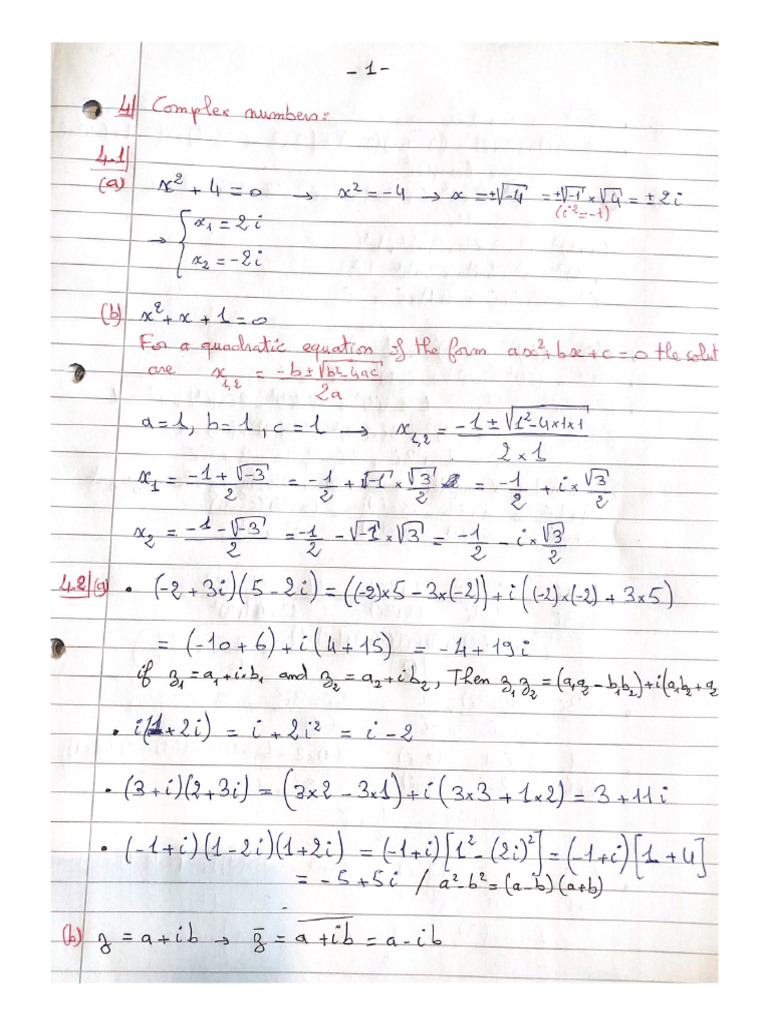 - 1 -
4/ Complex numbers:
4.1/
(a) x² + 4 = 0 → x² = -4 → x = ±√-4 = ±√-1 × √4 = ±2i
(i² = -1)
→ { x₁ = 2i
x₂ = -2i
(b) x² + x + 1 = 0
For a quadratic equation of the form ax² + bx + c = 0 the solut
are x₁,₂ = (-b ± √b²-4ac) / 2a
a = 1, b = 1, c = 1 → x₁,₂ = (-1 ± √1²-4×1×1) / 2×1
x₁ = (-1 + √-3) / 2 = -1/2 + √-1 × √3/2 = -1/2 + i × √3/2
x₂ = (-1 - √-3) / 2 = -1/2 - √-1 × √3 = -1/2 - i × √3/2
4.2/(a) • (-2 + 3i)(5 - 2i) = ((-2)×5 - 3×(-2)) + i((-2)×(-2) + 3×5)
= (-10 + 6) + i(4 + 15) = -4 + 19i
if z₁ = a₁ + i×b₁ and z₂ = a₂ + ib₂, Then z₁z₂ = (a₁a₂ - b₁b₂) + i(a₁b₂ + a₂
• i(1 + 2i) = i + 2i² = i - 2
• (3 + i)(2 + 3i) = (3×2 - 3×1) + i(3×3 + 1×2) = 3 + 11i
• (-1 + i)(1 - 2i)(1 + 2i) = (-1 + i)[1² - (2i)²] = (-1 + i)[1 + 4]
= -5 + 5i / a² - b² = (a - b)(a + b)
(b) z = a + ib → z̅ = a̅ ̅+̅ ̅i̅b̅ = a - ib